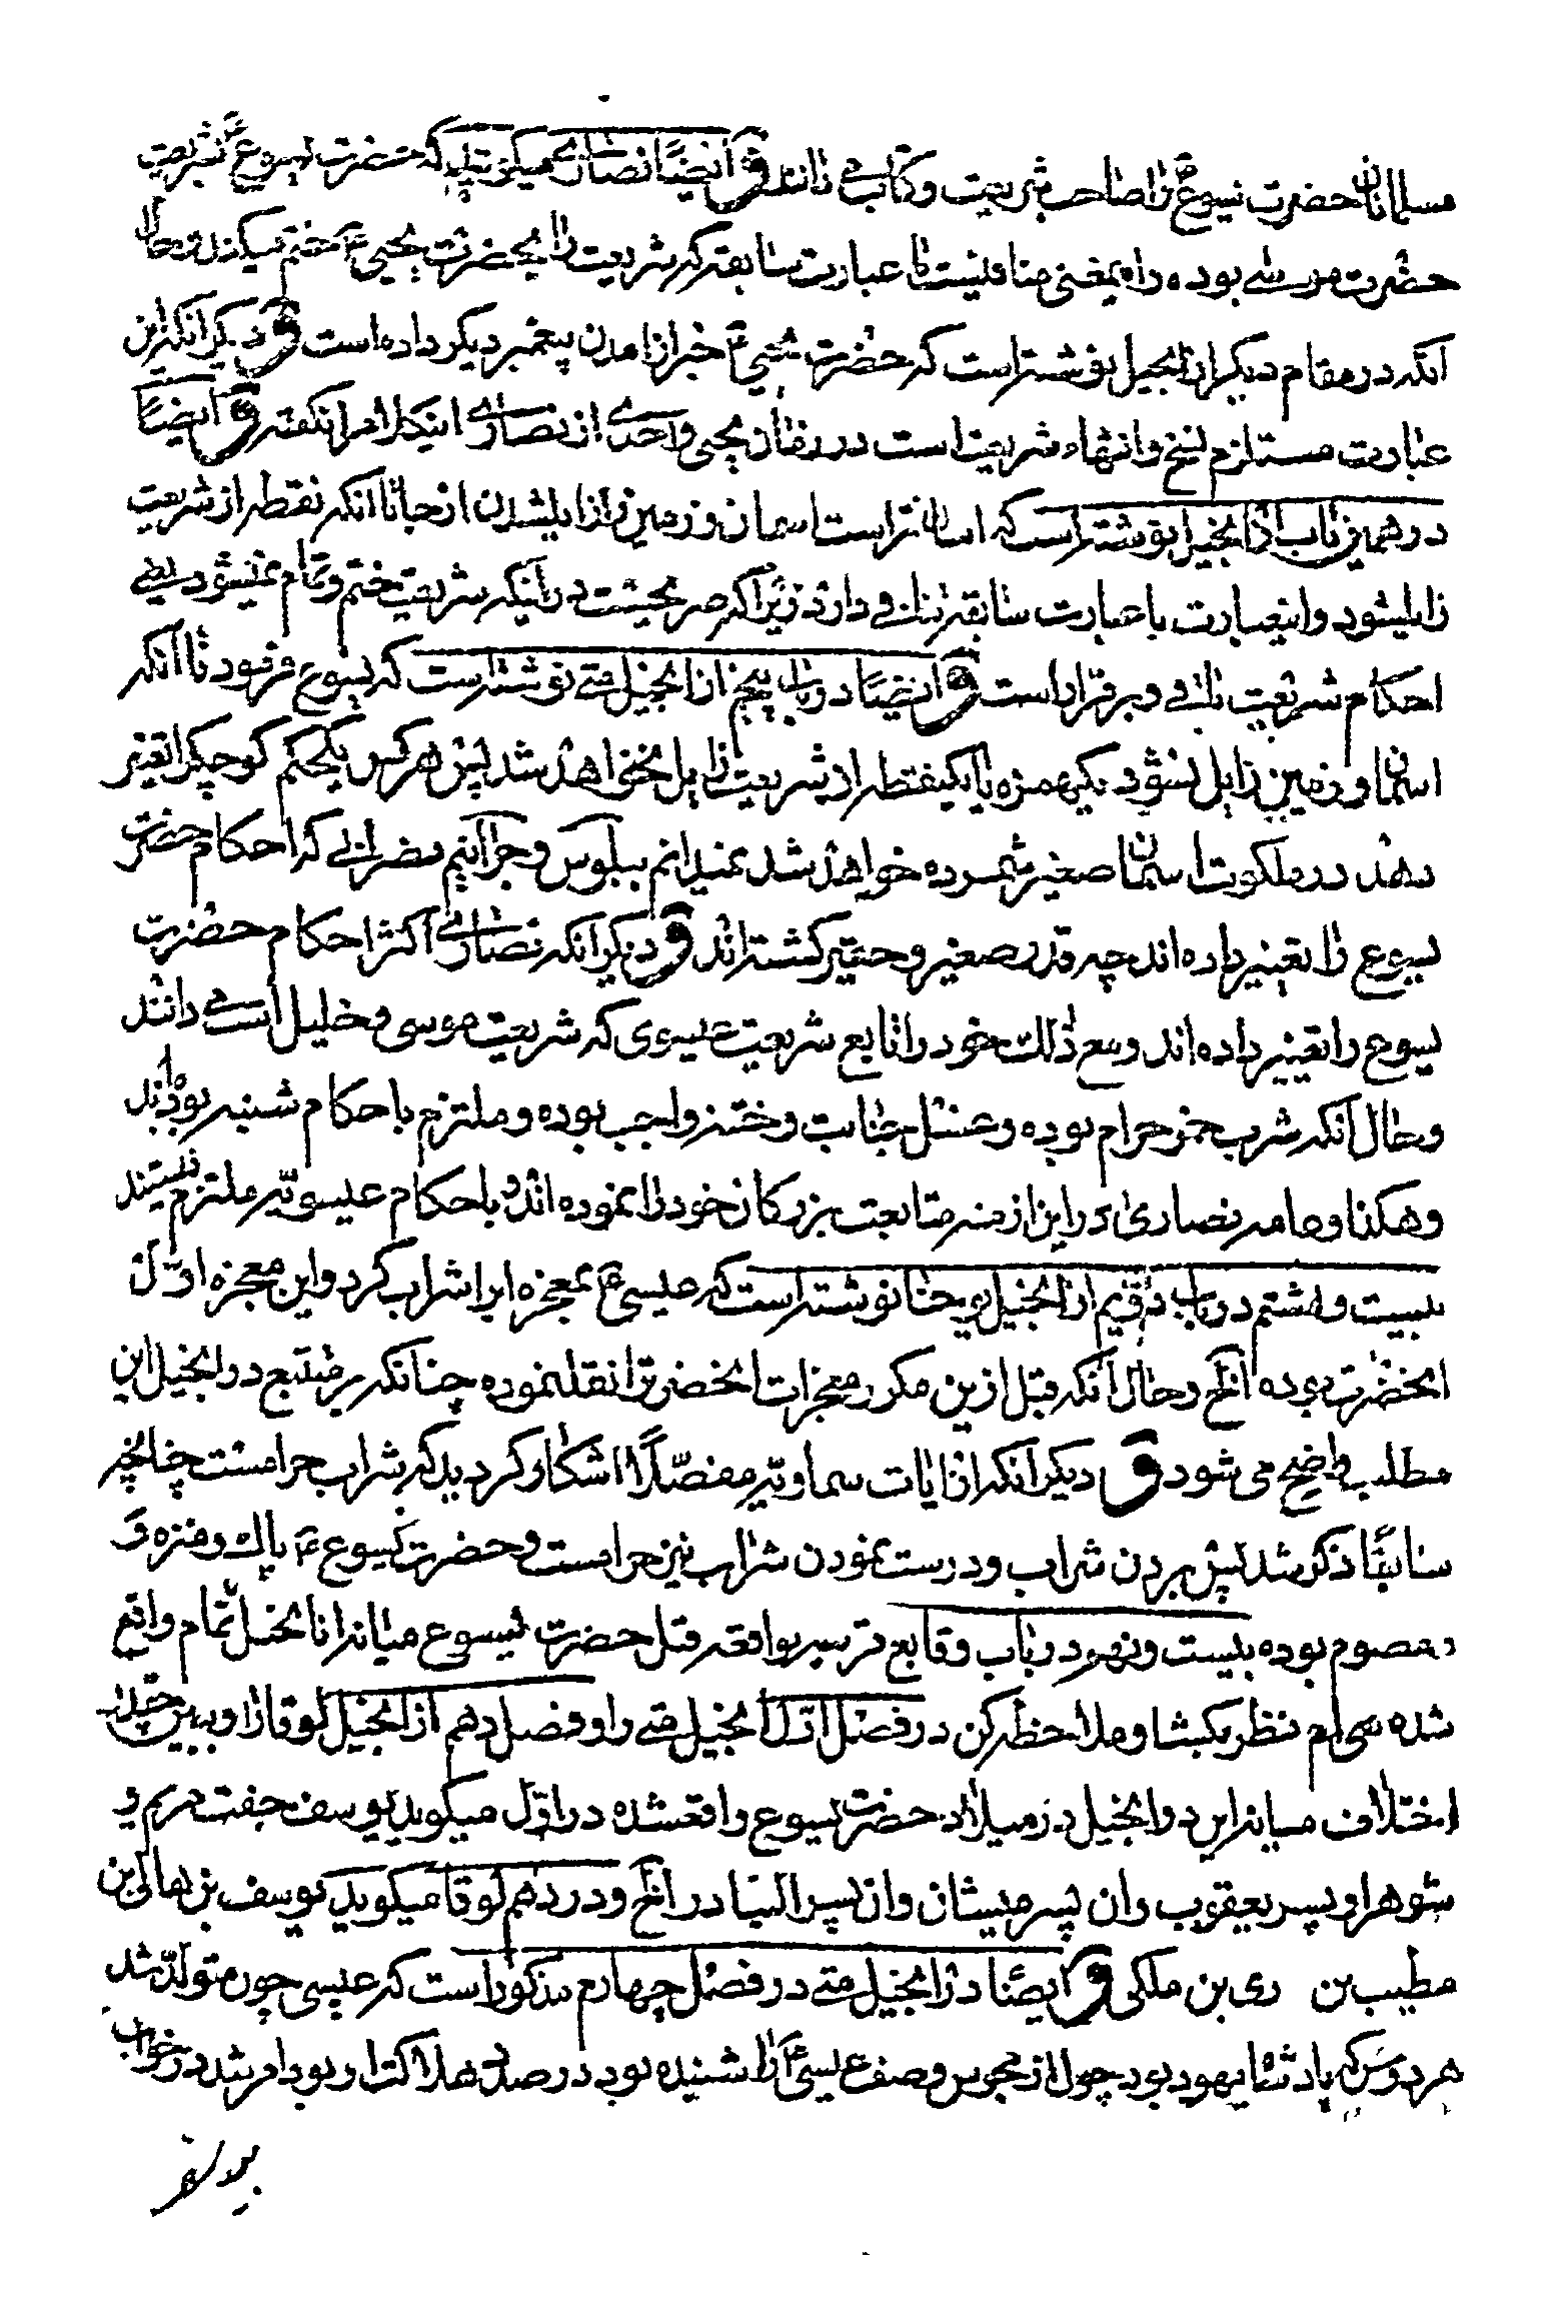 مسلمانان حضرت یسوع ع را صاحب شریعت و کتاب می دانند و ایضاً نصاری میکویند که حضرت یسوع ع بشریعت
حضرت موسی بوده و این معنی منافیست با عبارت سابقه که شریعت را بحضرت یحیی ع ختم میکند و حال
انکه در مقام دیکر از انجیل نوشته است که حضرت یحیی ع خبر از امدن پیغمبر دیکر داده است و دیکر انکه این
عبارت مستلزم نسخ و انتهاء شریعت است در زمان یحیی و احدی از نصاری اینکلام را نکفته و ایضاً
در همین باب از انجیل نوشته است که اسان تر است اسمان و زمین زایل شدن از جا تا انکه نقطه از شریعت
زایلشود و اینعبارت با عبارت سابقه تنافی دارد زیرا که صریحست در اینکه شریعت ختم و تمام نمیشود یعنی
احکام شریعت باقی و برقرار است و ایضاً در باب پنجم از انجیل متی نوشته است که یسوع فرمود تا انکه
اسمان و زمین زایل نشود یکهمزه یا یکنقطه از شریعت زایل نخواهد شد پس هر کس یکحکم کوچکرا تغییر
دهد در ملکوت اسمان صغیر شمرده خواهد شد نمیدانم پبلوس و جرانیم نصرانی که احکام حضرت
یسوع را تغییر داده اند چه قدر صغیر و حقیر کشته اند و دیکر انکه نصاری اکثر احکام حضرت
یسوع را تغییر داده اند و مع ذلک خود را تابع شریعت عیسوی که شریعت موسی و خلیل است می دانند
و حال آنکه شرب خمر حرام بوده و غسل جنابت و ختنه واجب بوده و ملتزم باحکام شنبه بوده اند
و هکذا و عامه نصاری در این ازمنه متابعت بزرکان خود را نموده اند و باحکام عیسویه ملتزم نیستند
بیست و هشتم در باب دویم از انجیل یوحنا نوشته است که عیسی ع بمعجزه ابرا شراب کرد و این معجزه اول
انحضرت بوده الخ و حال آنکه قبل ازین مکرر معجزات انحضرترا نقلنموده چنانکه بر متتبع در انجیل این
مطلب واضح می شود و دیکر آنکه از ایات سماویه مفصّلاً اشکار کردید که شراب حرامست چنانچه
سابقاً ذکر شد پس بردن شراب و درست نمودن شراب نیز حرامست و حضرت یسوع ع پاک و منزه و
معصوم بوده بیست و نهم در باب وقایع قریبه بواقعه قتل حضرت یسوع میانه اناجیل تمام واقع
شده سی ام نظر بکشا و ملاحظه کن در فصل اوّل انجیل متی را و فصل دهم از انجیل لوقا را و ببین چقدر
اختلاف میانه این دو انجیل در میلاد حضرت یسوع واقعشده در اوّل میکوید یوسف جفت مریم و
شوهر او پسر یعقوب و ان پسر میشان و ان پسر الیا در الخ و در دهم لوقا میکوید یوسف بن هالی بن
مطیب بن ری بن ملکی و ایضاً در انجیل متی در فصل چهارم مذکور است که عیسی چون متولّد شد
هردوس که پادشاه یهود بود چون از مجوس وصف عیسی ع را شنیده بود در صدد هلاکت او بود امر شد در خواب